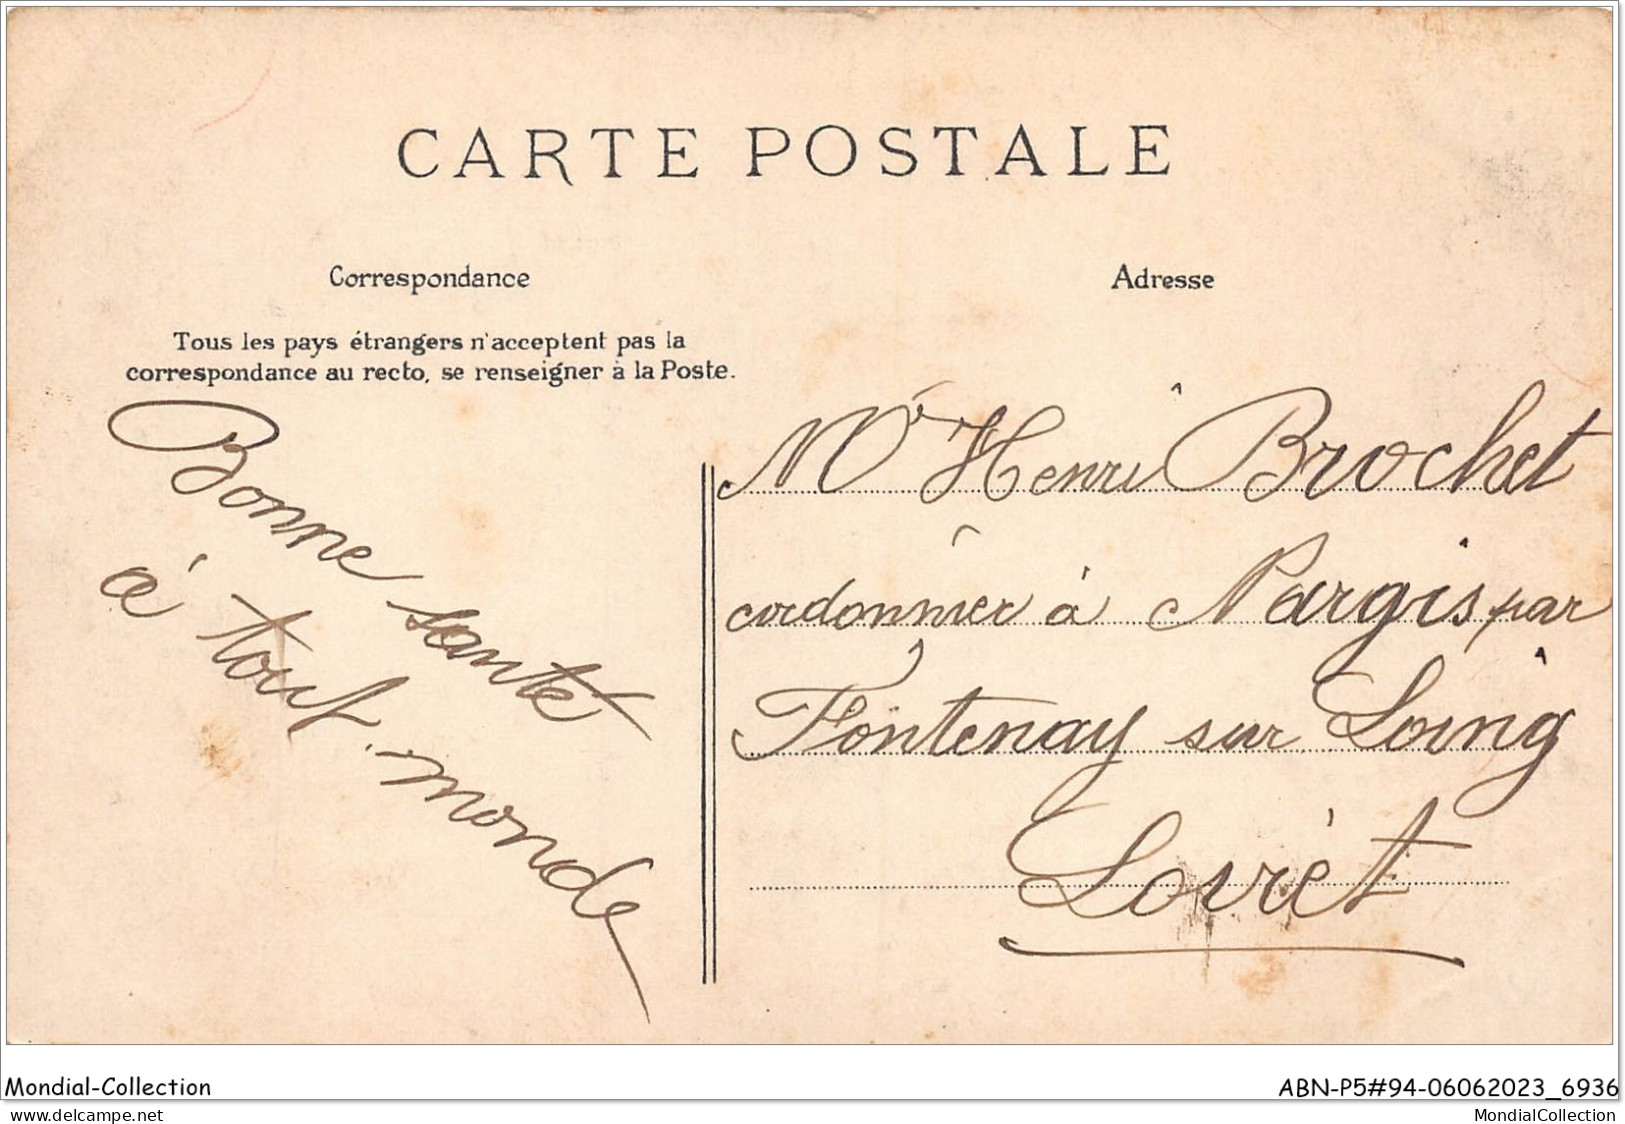 CARTE POSTALE
Correspondance
Adresse
Tous les pays étrangers n'acceptent pas la
correspondance au recto, se renseigner à la Poste.
Bonne santé
à tout monde
Mr Henri Brochet
cordonnier à Nargis par
Fontenay sur Loing
Loirèt
Mondial-Collection
ABN-P5#94-06062023_6936
www.delcampe.net
MondialCollection